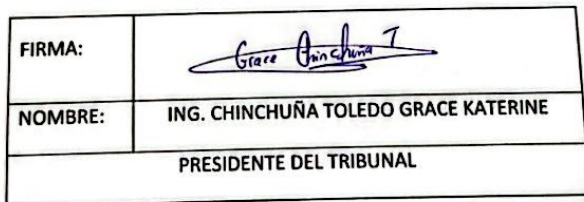 FIRMA: Grace Chinchuña T
NOMBRE: ING. CHINCHUÑA TOLEDO GRACE KATERINE
PRESIDENTE DEL TRIBUNAL